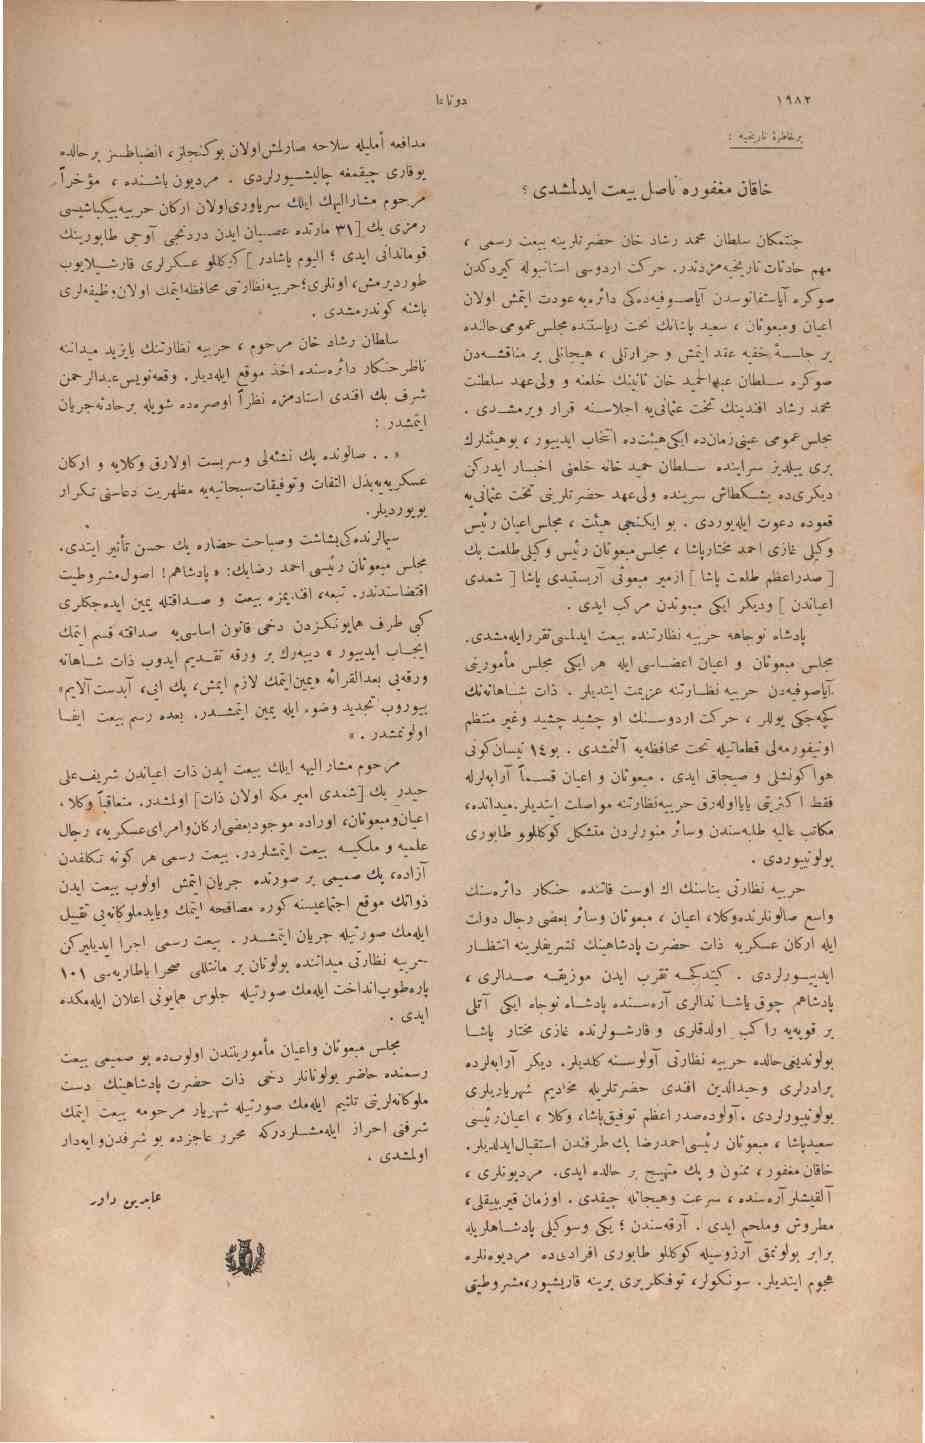 ١٩٨٢
دونانما
بر خاطرهٔ تاريخيه :
خاقان مغفوره ناصل بيعت ايدلمشدى ؟
جنتمكان سلطان محمد رشاد خان حضرتلرينه بيعت رسمى ،
مهم حادثات تاريخيه‌مزدندر. حركت اردوسى استانبوله كيردكدن
صوكره آياستفانوسدن آياصوفيه‌ده‌كى دائره‌يه عودت ايتمش اولان
اعيان ومبعوثان ، سعيد پاشانك تحت رياستنده مجلس عمومى حالنده
بر جلسهٔ خفيه عقد ايتمش و حرارتلى ، هيجانلى بر مناقشه‌دن
صوكره سلطان عبدالحميد خان ثانينك خلعنه و ولى عهد سلطنت
محمد رشاد افندينك تخت عثمانى‌يه اجلاسنه قرار ويرمشدى .
مجلس عمومى عينى زمان‌ده ايكى هيئت‌ده انتخاب ايدييور ، بوهيئتلرك
برى ييلديز سراينده سلطان حميد خانه خلعنى اخبار ايدركن
ديكرى‌ده بشكطاش سرينده ولى عهد حضرتلرينى تخت عثمانى‌يه
قعوده دعوت ايليوردى . بو ايكنجى هيئت ، مجلس اعيان رئيس
وكيلى غازى احمد مختار پاشا ، مجلس مبعوثان رئيس وكيلى طلعت بك
[ صدراعظم طلعت پاشا ] ازمير مبعوثى آريستيدى پاشا [ شمدى
اعياندن ] وديكر ايكى مبعوثدن مركب ايدى .
پادشاه نوجاهه حربيه نظارتنده بيعت ايدلمسى تقرر ايله‌مشدى.
مجلس مبعوثان و اعيان اعضاسى ايله هر ايكى مجلس مأمورينى
آياصوفيه‌دن حربيه نظارتنه عزيمت ايتديلر . ذات شاهانه‌نك
كچه‌جكى يوللر ، حركت اردوسنك او چشيد چشيد وغير منتظم
اونيفورمه‌لى قطعاتيله تحت محافظه‌يه آلنمشدى . بو ١٤ نيسان كونى
هوا كونشلى و صيجاق ايدى . مبعوثان و اعيان قسماً آرابه‌لرله
فقط اكثريتى يايا اوله‌رق حربيه نظارتنه مواصلت ايتديلر. ميدانده،
مكاتب عاليه طلبه‌سندن وسائر منورلردن متشكل كوكللو طابورى
بولونييوردى .
حربيه نظارتى بناسنك اك اوست قاتنده خنكار دائره‌سنك
واسع صالونلرنده وكلا، اعيان ، مبعوثان وسائر بعضى رجال دولت
ايله اركان عسكريه ذات حضرت پادشاهينك تشريفلرينه انتظار
ايدييورلردى . كيتدكجه تقرب ايدن موزيقه صدالرى ،
پادشاهم چوق ياشا ندالرى آره‌سنده پادشاه نوجاه ايكى آتلى
بر قوپه‌يه راكب اولدقلرى و قارشولرنده غازى مختار پاشا
بولونديغى حالده حربيه نظارتى آولوسنه كلديلر. ديكر آرابه‌لرده
برادرلرى وحيدالدين افندى حضرتلريله مخاديم شهريارىلرى
بولونييورلردى . آولوده صدر اعظم توفيق پاشا، وكلا ، اعيان رئيسى
سعيد پاشا ، مبعوثان رئيسى احمد رضا بك طرفندن استقبال ايدلديلر.
خاقان مغفور ، ممنون و پك متهيج بر حالده ايدى. مرديونلرى ،
آلقيشلر آره‌سنده ، سرعت وهيجانله چيقدى . اوزمان قيربيقلى ،
مطروش وملحم ايدى . آرقه‌سندن ؛ يكى وسوكيلى پادشاهلريله
برابر بولونمق آرزوسيله كوكللو طابورى افرادى‌ده مرديوه‌نلره
هجوم ايتديلر. سونكولر، توفكلر برى برينه قاريشيور، مشروطيتى
مدافعه أمليله سلاحه صارلمش اولان بو كنجلر ، انضباطسز بر حالده
يوقارى چيقمغه چاليشيورلردى . مرديون باشنده ، مؤخراً
مرحوم مشاراليهك ايلك سرياورى اولان اركان حربيه بيكباشيسى
رمزى بك [ ٣١ مارتده عصيان ايدن دردنجى آوجى طابورينك
قوماندانى ايدى ؛ اليوم پاشادر ] كوكللو عسكرلرى قارشيلايوب
طورديرمش، اونلرى؛ حربيه نظارتى محافظه ايتمك اولان وظيفه‌لرى
باشنه كوندرمشدى .
سلطان رشاد خان مرحوم ، حربيه نظارتنك بايزيد ميداننه
ناظر خنكار دائره‌سنده اخذ موقع ايله‌ديلر. وقعه‌نويس عبدالرحمن
شرف بك افندى استادمزه نظراً اوصره‌ده شويله بر حادثه جريان
ايتمشدر :
« . . صالونده پك نشئه‌لى وسربست اولارق وكلايه و اركان
عسكريه‌يه بذل التفات وتوفيقات سبحانيه‌يه مظهريت دعاسنى تكرار
بويورديلر.
سيمالرنده‌كى بشاشت وصباحت حضاره پك حسن تأثير ايتدى.
مجلس مبعوثان رئيسى احمد رضا بك: « پادشاهم! اصول مشروطيت
اقتضاسندندر. تبعه، افنديمزه بيعت و صداقتله يمين ايده‌جكلرى
كبى طرف همايونكزدن دخى قانون اساسى‌يه صداقته قسم ايتمك
ايجاب ايدييور » ديه‌رك بر ورقه تقديم ايدوب ذات شاهانه
ورقه‌يى بعدالقرائه «يمين ايتمك لازم ايمش، پك ايى، آبدست آلايم»
بيوروب تجديد وضوء ايله يمين ايتمشدر. بعده رسم بيعت ايفا
اولونمشدر . »
مرحوم مشار اليهه ايلك بيعت ايدن ذات اعياندن شريف على
حيدر بك [شمدى امير مكه اولان ذات] اولمشدر. متعاقباً وكلا ،
اعيان ومبعوثان، اوراده موجود بعضى اركان وامراى عسكريه، رجال
علميه و ملكيه بيعت ايتمشلردر. بيعت رسمى هر كونه تكلفدن
آزاده، پك صميمى بر صورتده جريان ايتمش اولوب بيعت ايدن
ذواتك موقع اجتماعيسنه كوره مصافحه ايتمك ويايد ملوكانه‌يى تقبيل
ايله‌مك صورتيله جريان ايتمشدر . بيعت رسمى اجرا ايديليركن
حربيه نظارتى ميداننده بولونان بر مانتللى صحرا باطاريه‌سى ١٠١
پاره طوپ انداخت ايله‌مك صورتيله جلوس همايونى اعلان ايله‌مكده
ايدى .
مجلس مبعوثان واعيان مأموريتندن اولوب‌ده بو صميمى بيعت
رسمنده حاضر بولونانلر دخى ذات حضرت پادشاهينك دست
ملوكانه‌لرينى تلثيم ايله‌مك صورتيله شهريار مرحومه بيعت ايتمك
شرفنى احراز ايله‌مشلردركه محرر عاجزده بو شرفدن وايه‌دار
اولمشدى .
عابدين داور